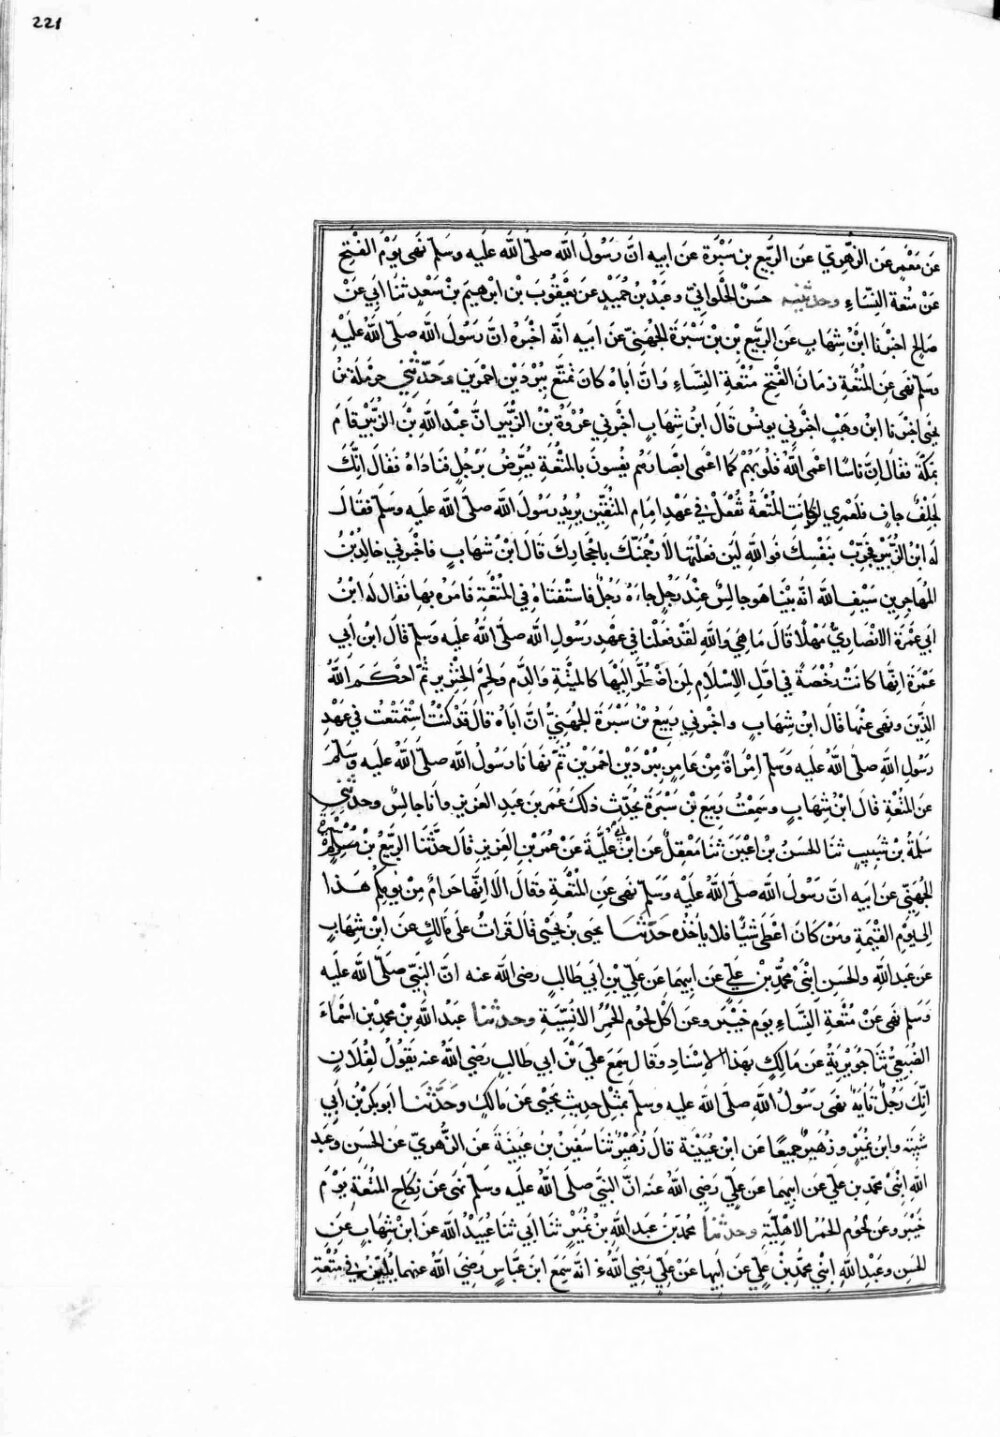 221
عَن مَعْمَرٍ عَن الزُّهْرِيّ عَن الرَّبِيع بن سَبْرَة عَن ابيه انَّ رَسُولَ الله صلّى الله عليه وسلّم نَهَى يَوْمَ الفَتْحِ
عَنْ مُتْعَةِ النِّسَاءِ وحدثنيه حسَنُ الحُلْوَانيّ وعَبدُ بن حُمَيدٍ عَن يَعقُوبَ بن ابرهيمَ بن سَعْدٍ ثنا ابي عَنْ
صَالح اخبرنا ابنُ شِهَابٍ عَن الرَّبيعِ بْن بن سَبْرَةَ الجُهَنِيّ عَن ابيه انّه اخبَره انَّ رسُولَ الله صَلّى الله عَلَيْهِ
وسلّم نهى عَن المُتْعَةِ زمَانَ الفَتْحِ مُتْعَةِ النِّسَاءِ وَانَّ ابَاهُ كانَ تَمَتَّعَ بِبُرْدَيْنِ احمَرينِ وحَدّثني حرملة بنُ
يحيى اخبرنا ابن وَهْبٍ اخبرني يونسُ قالَ ابنُ شِهَابٍ اخبرني عُرْوَةُ بْنُ الزُّبَيرِ انَّ عَبْدَ اللهِ بْنَ الزُّبَيْرِ قَامَ
بمكّةَ فقالَ انَّ نَاسًا اعْمَى اللهُ قُلُوبَهُمْ كمَا اعْمَى ابْصَارَهُم يُفتُونَ بالمتْعَةِ يُعَرِّضُ بِرَجُلٍ فنَادَاهُ فقَالَ انّكَ
لَجِلْفٌ جافٍ فلَعَمْرِي لقد كانَت المُتْعَةُ تُفْعَلُ في عَهْدِ امَامِ المُتَّقِينَ يريدُ رَسُولَ اللهِ صلّى الله عليه وسَلّم فقَالَ
له ابنُ الزُّبَيْرِ فجَرِّبْ بنَفْسِكَ فوَاللهِ لَئِن فعَلْتَهَا لَأَرْجُمَنَّكَ باحْجَارِكَ قَالَ ابنُ شهَابٍ فاخْبرَني خَالِدُ بْنُ
المُهَاجِرِ بن سَيْفِ الله انّه بَيْنَا هو جالِسٌ عِنْدَ رَجُلٍ جاءَهُ رَجُلٌ فاسْتفتَاهُ في المُتْعَةِ فَامَرَهُ بهَا فقالَ لَه ابنُ
ابي عَمْرَة الانْصَارِيُّ مَهْلًا قَالَ مَا هِيَ وَاللهِ لقد فُعِلَتْ في عهْدِ رَسُولِ الله صلّى الله عليه وسلّم قال ابن ابي
عَمْرَةَ انّهَا كانَتْ رُخْصَةً في اوّلِ الاسْلَامِ لمَن اضْطُرَّ الَيْهَا كالميْتَةِ وَالدّم ولَحْمِ الخِنْزِيرِ ثمَّ احْكَمَ اللهُ
الدِّينَ ونَهى عَنْهَا قالَ ابن شِهَابٍ واخبَرني رَبِيعُ بْنُ سَبْرَةَ الجُهَنِيُّ انَّ ابَاهُ قالَ قدْ كنْتُ اسْتَمتَعْتُ في عَهْدِ
رسُولِ اللهِ صَلّى اللهُ عليه وَسَلّمَ امْرَاةً مِنْ بَنى عَامِرٍ بِبُرْدَيْنِ احْمَرَيْنِ ثُمَّ نَهَانَا رَسُولُ الله صلّى الله عليه وسَلّمَ
عَنِ المتْعَةِ قالَ ابنُ شِهَابٍ وسَمِعتُ رَبِيعَ بْنَ سَبْرَةَ يُحَدِّثُ ذلكَ عُمَرَ بن عَبدِ العَزيزِ وأنا جالسٌ وحدثني
سَلَمَةُ بن شَبِيبٍ ثنا الحسَنُ بن اعْيَنَ ثنا مَعْقِلٌ عَن ابْن ابي عُلَيَّةَ عَن عُمَرَ بْنِ العَزِيزِ قَالَ حَدَّثَنَا الرّبيعُ بنُ سَبرةَ
الجُهَنِيّ عَن ابيه انَّ رَسُولَ الله صَلّى الله عليه وسَلّمَ نَهَى عَن المتْعَةِ وقَالَ الا انّها حَرَامٌ مِنْ يَومِكُمْ هَذا
الى يَوْمِ القيمَةِ ومَنْ كانَ اعْطَى شَيْئًا فلا يأخُذْه حَدَّثَنَا يحيى بْنُ يحيى قالَ قَراتُ عَلَى مَالِكٍ عَن ابْن شِهَابٍ
عَن عَبدِ اللهِ والحسَن ابْنَيْ مُحمّدِ بْنِ عَليٍّ عَن ابِيهِما عَن عَلِيّ بْنِ ابي طَالبٍ رضى الله عنه انَّ النّبيّ صَلّى اللهُ عَلَيه
وَسَلّم نَهَى عَنْ مُتْعَةِ النِّسَاءِ يَوم خَيْبَر وعَن اكْلِ لحُوم الحُمُرِ الانْسِيَّةِ وحدثنا عَبْدُ اللهِ بن محمدِ بن اسْمَاءَ
الضُّبَعِيُّ ثنا جُوَيْرِيَةُ عَن مَالكٍ بهذا الاسْنَادِ وقَالَ سمِعَ عَليَّ بْنَ ابي طالِبٍ رَضِيَ اللهُ عنه يَقُولُ لِفُلَانٍ
انّكَ رَجُلٌ تَائِهٌ نَهَى رَسُولُ اللهِ صلّى الله عليه وسلّم بمثْلِ حديث يَحْيَى عَن مَالكٍ وحَدَّثَنَا ابو بكر بْنُ ابي
شَيْبَةَ وابنُ نُمَيْرٍ وزُهَيرٌ جميعًا عَن ابن عُيَيْنَةَ قالَ زُهَيْرٌ ثنا سُفيَنُ بنُ عُيَيْنَةَ عَن الزُّهْرِيّ عَن الحسَنِ وعَبدِ
اللهِ ابْنَيْ محمّدِ بنِ عَليّ عَن ابِيهِمَا عَن عَلِيٍّ رَضِيَ اللهُ عنه انَّ النّبيَّ صَلّى الله عليه وسلّمَ نَهَى عَن نِكَاحِ المتْعَةِ يَوْمَ
خَيْبَرَ وعَن لحُومِ الحُمُرِ الاهْلِيَّةِ وحدثنا محمّدُ بْنُ عَبدِ اللهِ بْنِ نُمَيْرٍ ثنا ابي ثنا عُبَيدُ اللهِ عَن ابن شِهَابٍ عَن
الحسَن وعَبْدِ اللهِ ابْنَي محمّدِ بْنِ عَليٍّ عَن ابِيهمَا عَن عَلِيّ رَضِيَ اللهُ عنه انّه سَمِعَ ابن عَبّاسٍ رَضِيَ الله عنهما يُلَيّنُ في مُتْعَةِ